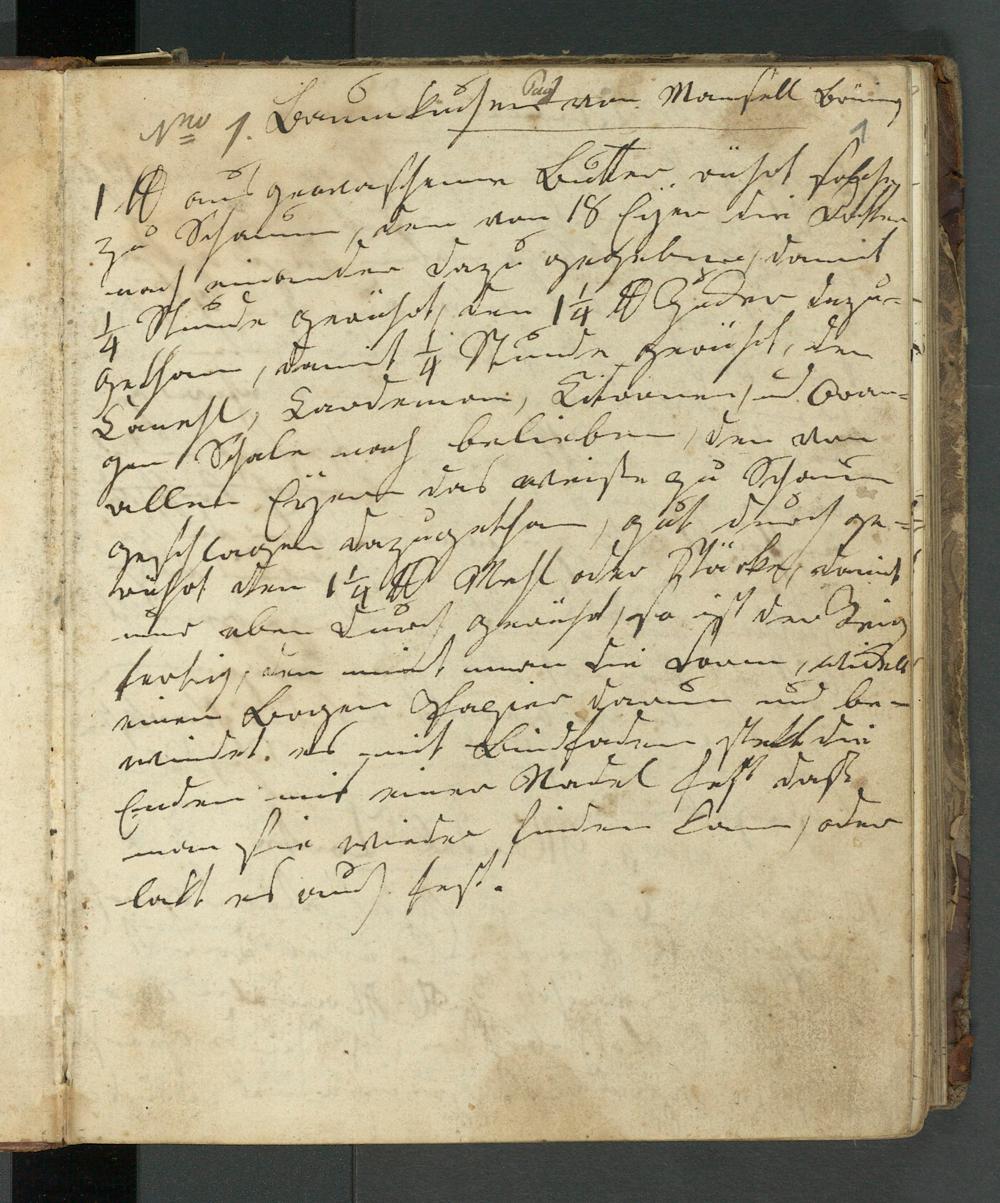 Nro 1. Baumkuchen von Mamsell Böning
1
1 ℔ aus gewaschene Butter, rührt solche
zu Schaum, den von 18 Eyer die Dotter
nach einander dazu gegeben, damit
1/4 Stunde gerührt, den 1 1/4 ℔ Zucker dazu-
gethan, damit 1/4 Stunde gerührt, den
Canehl, Cardemom, Citronen, und Oran-
gen Schale nach belieben, den von
allen Eyern das weiße zu Schaum
geschlagen dazugethan, gut durch ge-
rührt den 1 1/4 ℔ Mehl oder Stärke, damit
nur eben durch gerührt, so ist der Teig
fertig, den nimt man die Form, wickelt
einen Bogen Papier darum und be-
windet es mit Bindfaden steckt die
Enden mit einer Nadel fest daß
man sie wieder finden kann, oder
es auch fest.